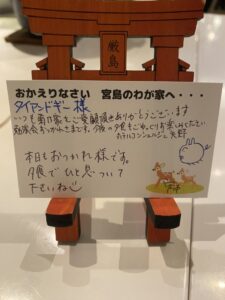 厳島
おかえりなさい 宮島のわが家へ・・・
ダイアンドギー 様
いつも 当館をご愛顧 ありがとうございます
おつかれさまです。今夜の夕食もごゆっくりお楽しみください
ホテルコンシェルジュ 矢野
本日もおつかれ様です。
夕食でひと息ついて
下さいね